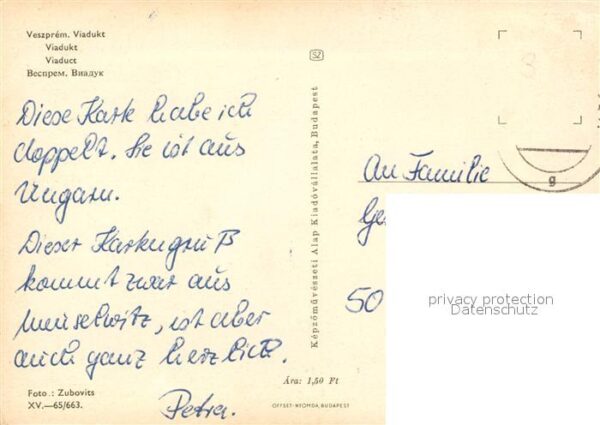 Veszprém. Viadukt
Viadukt
Viaduct
Веспрем. Виадук
Diese Karte habe ich
doppelt. Sie ist aus
Ungarn.
Dieser Kartengruß
kommt zwar aus
Meuselwitz, ist aber
auch ganz herzlich.
Petra.
Foto : Zubovits
XV.—65/663.
Képzőművészeti Alap Kiadóvállalata, Budapest
Ára: 1,50 Ft
OFFSET-NYOMDA, BUDAPEST
SZ
g
An Familie
Ge
50
privacy protection
Datenschutz